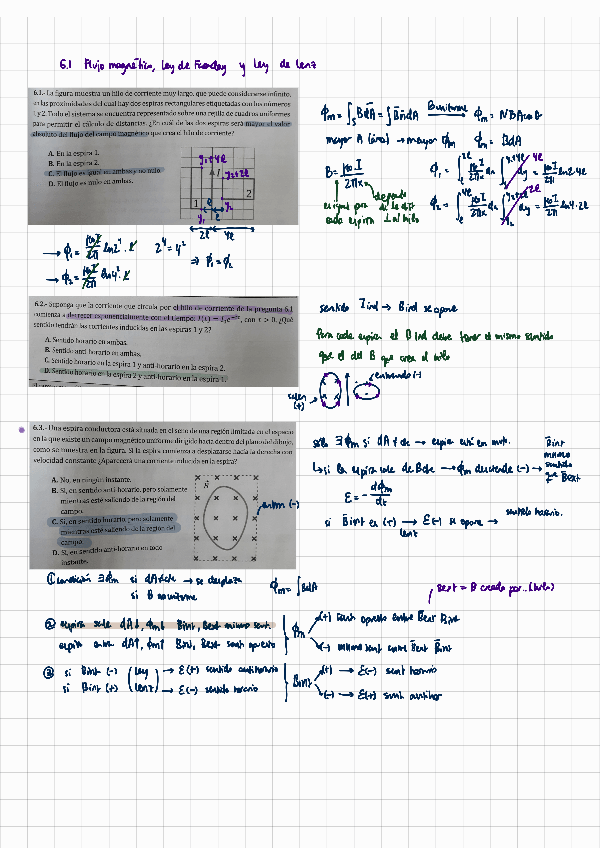 6.1 Flujo magnético, Ley de Faraday y Ley de Lenz
6.1.- La figura muestra un hilo de corriente muy largo, que puede considerarse infinito,
en las proximidades del cual hay dos espiras rectangulares etiquetadas con los números
1 y 2. Todo el sistema se encuentra representado sobre una rejilla de cuadros uniformes
para permitir el cálculo de distancias. ¿En cuál de las dos espiras será mayor el valor
absoluto del flujo del campo magnético que crea el hilo de corriente?
A. En la espira 1.
B. En la espira 2.
C. El flujo es igual en ambas y no nulo.
D. El flujo es nulo en ambas.
y1+4ℓ
y2+2ℓ
I
1
2
y1
y2
ℓ
ℓ
2ℓ 4ℓ
Φm = ∫s B dA = ∫ B n dA B uniforme Φm = NBA cos θ
mayor A (área) → mayor Φm Φm = BdA
B = μ0 I / 2πx
depende
ℓn 2·4ℓ
ℓn 4·2ℓ
cada espira ⊥ al hilo
→ Φ1 = μ0 I / 2π ln 2⁴ · ℓ 2⁴ = 4²
→ Φ2 = μ0 I / 2π ln 4² · ℓ ⇒ Φ1 = Φ2
6.2.- Suponga que la corriente que circula por el hilo de corriente de la pregunta 6.1
comienza a decrecer exponencialmente con el tiempo:
con τ > 0. ¿Qué
sentido tendrán las corrientes inducidas en las espiras 1 y 2?
A. Sentido horario en ambas.
B. Sentido anti-horario en ambas.
C. Sentido horario en la espira 1 y anti-horario en la espira 2.
D. Sentido horario en la espira 2 y anti-horario en la espira 1.
sentido I ind → B ind se opone
Para cada espira el B ind debe tener el mismo sentido
que el del B que crea el hilo
salen (+)
entrando (-)
6.3.- Una espira conductora está situada en el seno de una región limitada en el espacio
en la que existe un campo magnético uniforme dirigido hacia dentro del plano del dibujo,
como se muestra en la figura. Si la espira comienza a desplazarse hacia la derecha con
velocidad constante ¿Aparecerá una corriente inducida en la espira?
A. No, en ningún instante.
B. Sí, en sentido anti-horario, pero solamente
mientras esté saliendo de la región del
campo.
C. Sí, en sentido horario, pero solamente
mientras esté saliendo de la región del
campo.
D. Sí, en sentido anti-horario en todo
instante.
entran (-)
solo ∃ Φm si dA≠cte → espira está en mov.
↳ si la espira sale de B cte → Φm desciende (-) → B int mismo sentido que B ext
ε = - dΦm / dt
si B int es (+) → Lenz ε(-) se opone → sentido horario.
① condición ∃ Φm si dA≠cte → se desplaza Φm = ∫BdA
si B no uniforme
Bext = B creado por... (hilo)
② espira sale dA↓, Φm↓ Bint, Bext mismo sent.
espira entra dA↑, Φm↑ Bint, Bext sent opuesto
Φm
(+) sent opuesto entre Bext Bint
(-) mismo sent entre Bext Bint
③ si Bint (-) (Ley → ε(+) sentido antihorario
si Bint (+) Lenz) → ε(-) sentido horario
Bint
(+) → ε(-) sent horario
(-) → ε(+) sent antihor